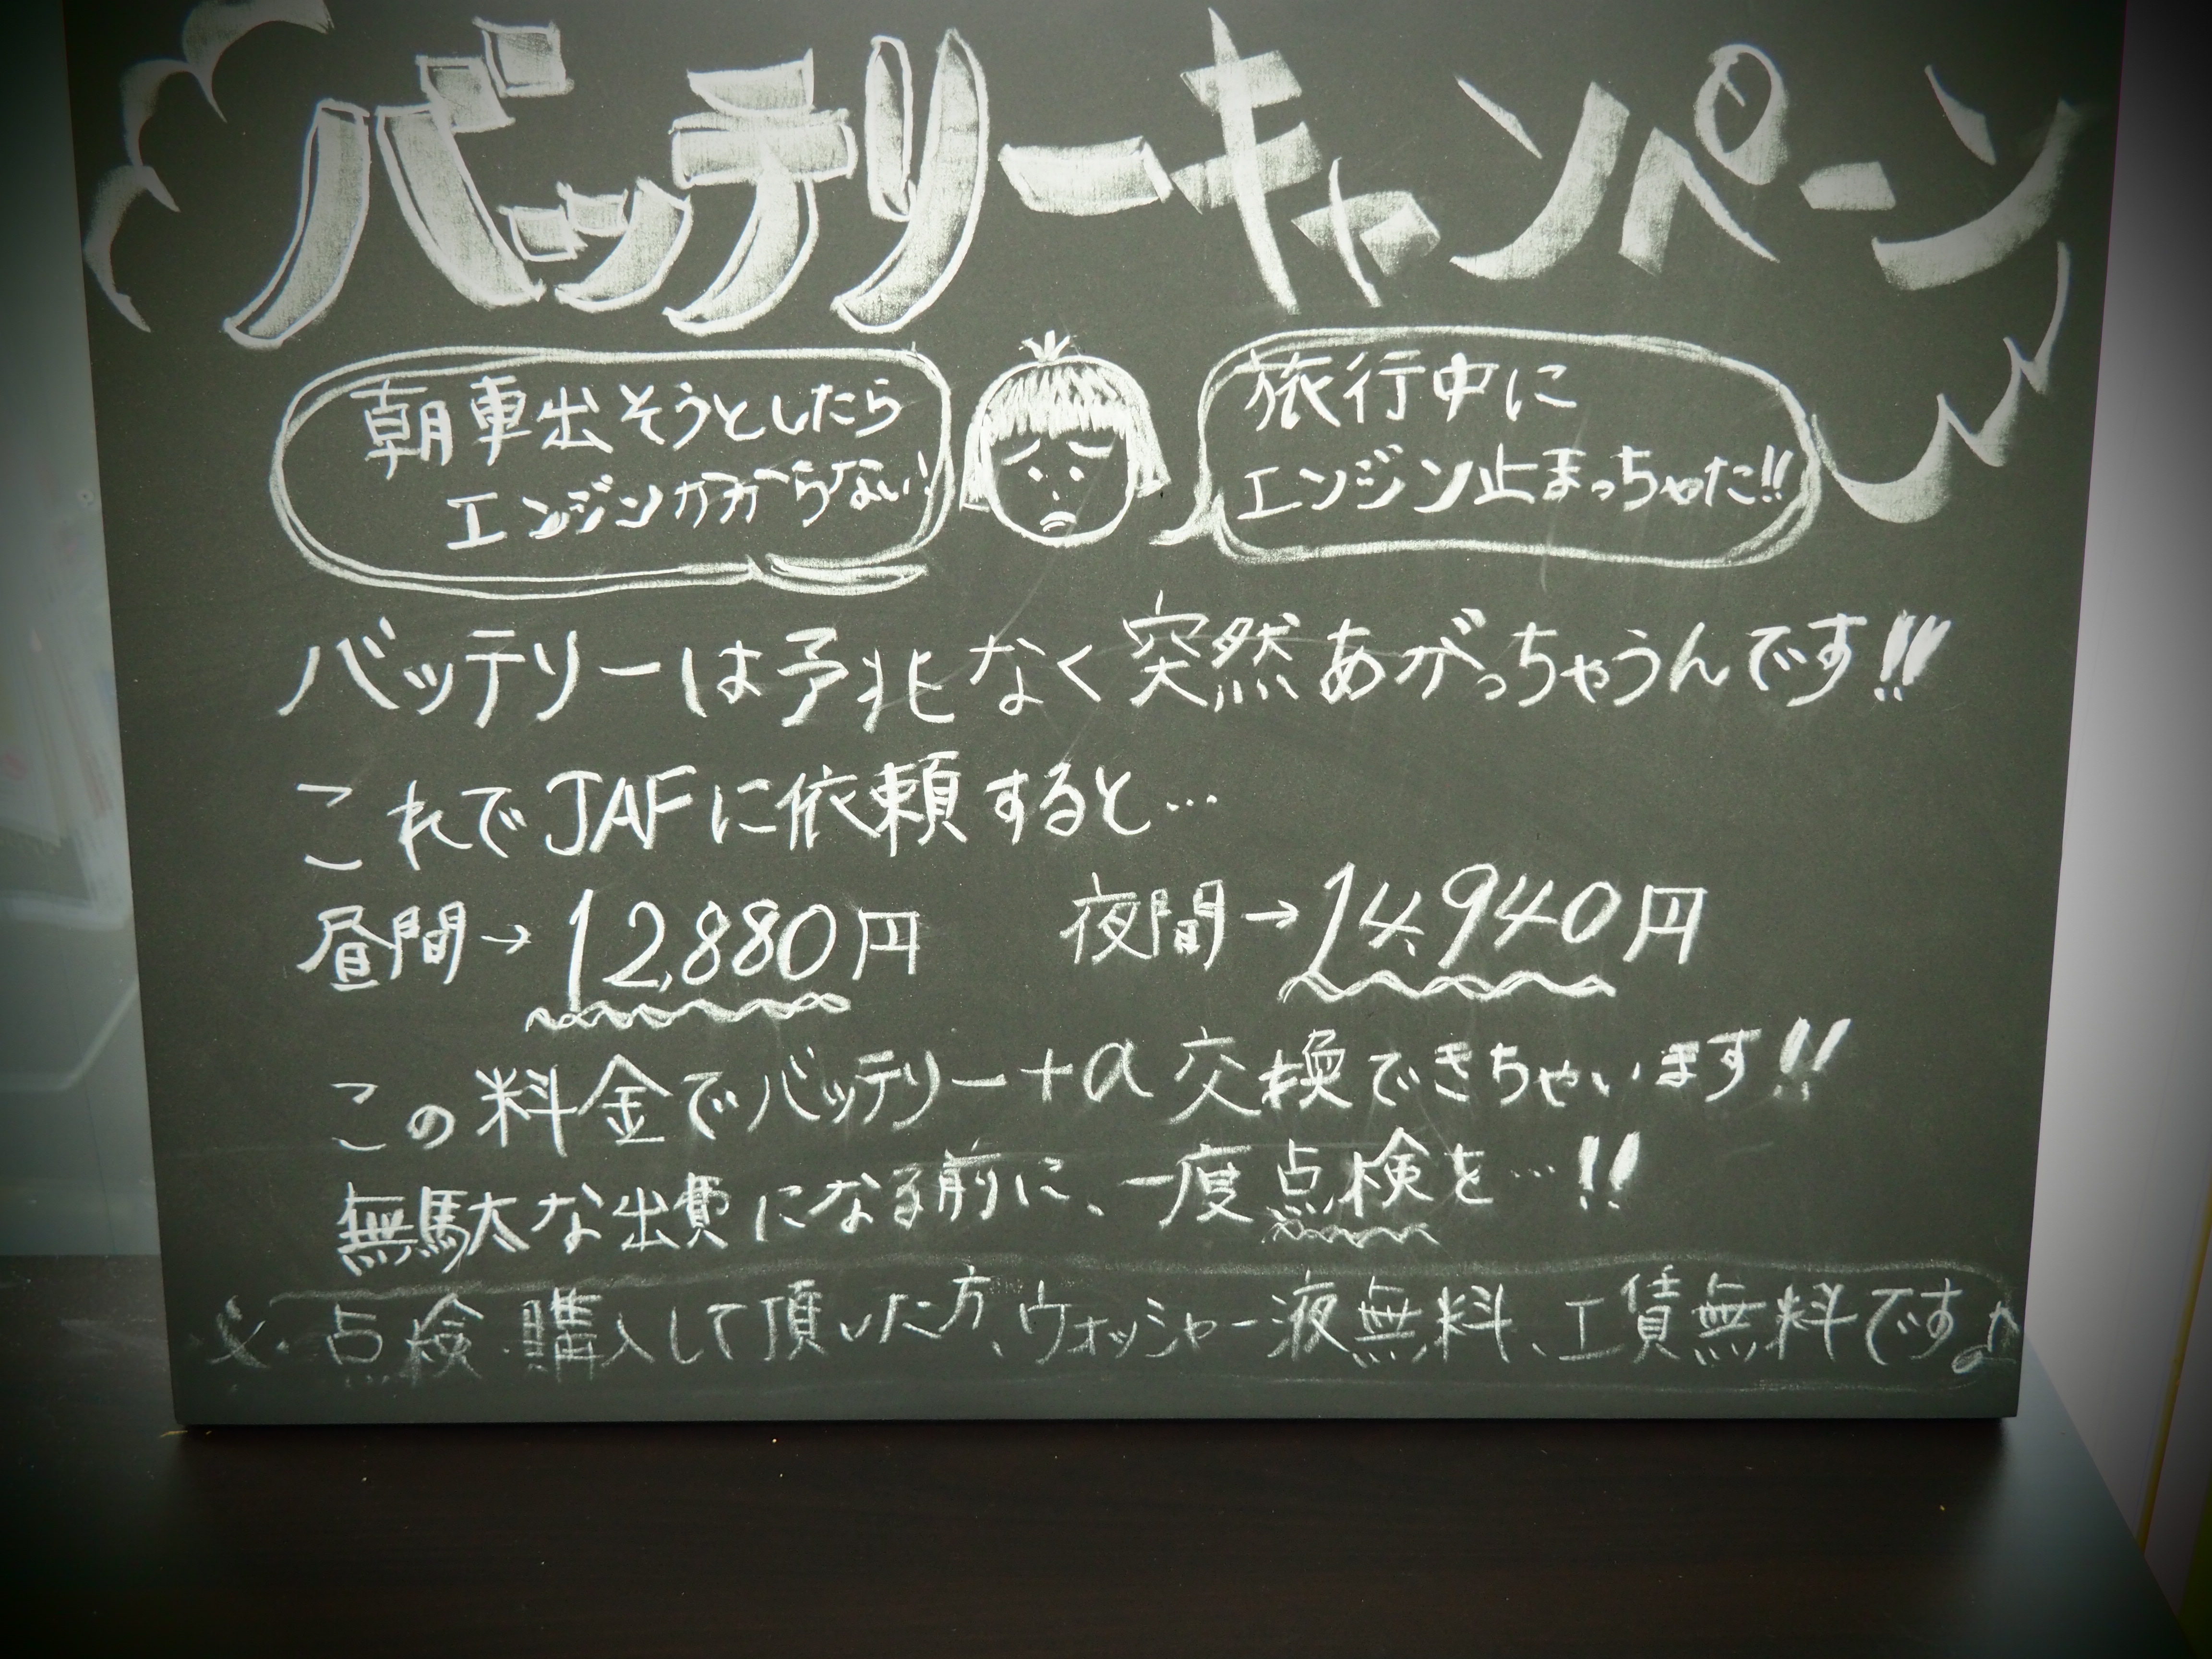 バッテリーキャンペーン
朝車出そうとしたら
エンジンかからない!
旅行中に
エンジン止まっちゃた!!
バッテリーは予兆なく突然あがっちゃうんです!!!
これでJAFに依頼すると…
昼間→12,880円 夜間→14,940円
この料金でバッテリー+α交換できちゃいます!!
無駄な出費になる前に、一度点検を…!!
※・点検・購入して頂いた方、ウォッシャー液無料、工賃無料です♪